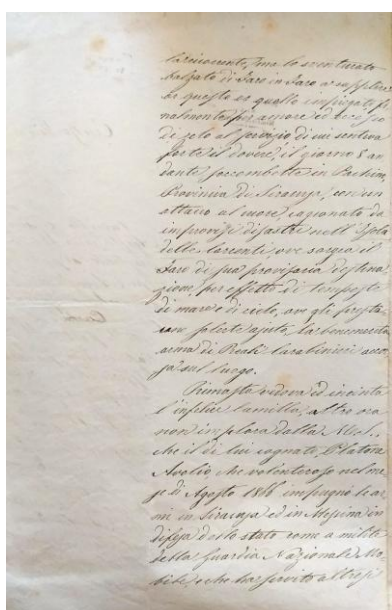 ma lo sventurato
balzato di Faro in Faro a supplire
or questo or quello impiegato fi
nalmente per amore ed eccesso
di zelo al servizio di cui sentiva
forte il dovere, il giorno 8 an
dante, soccombette in Pachino,
Provincia di Siracusa, con un
attacco al cuore, cagionato da
improvvisi disastri nell'Isola
delle Correnti, ove sorgea il
Faro di sua provvisoria destina
zione, per effetto di tempeste
di mare e di cielo, ove gli
ajuto, la benemerita
arma di Reali Carabinieri accor
sa sul luogo.
Rimasta vedova ed incinta
l'infelice Camilla, altro ora
non implora dalla
che il di lui cognato,
che volenteroso nel me
se di Agosto 1866 impugnò le ar
mi in Siracusa ed in Messina in
difesa dello stato come a milite
della Guardia Nazionale Mo
bile, e che ha servito altresì